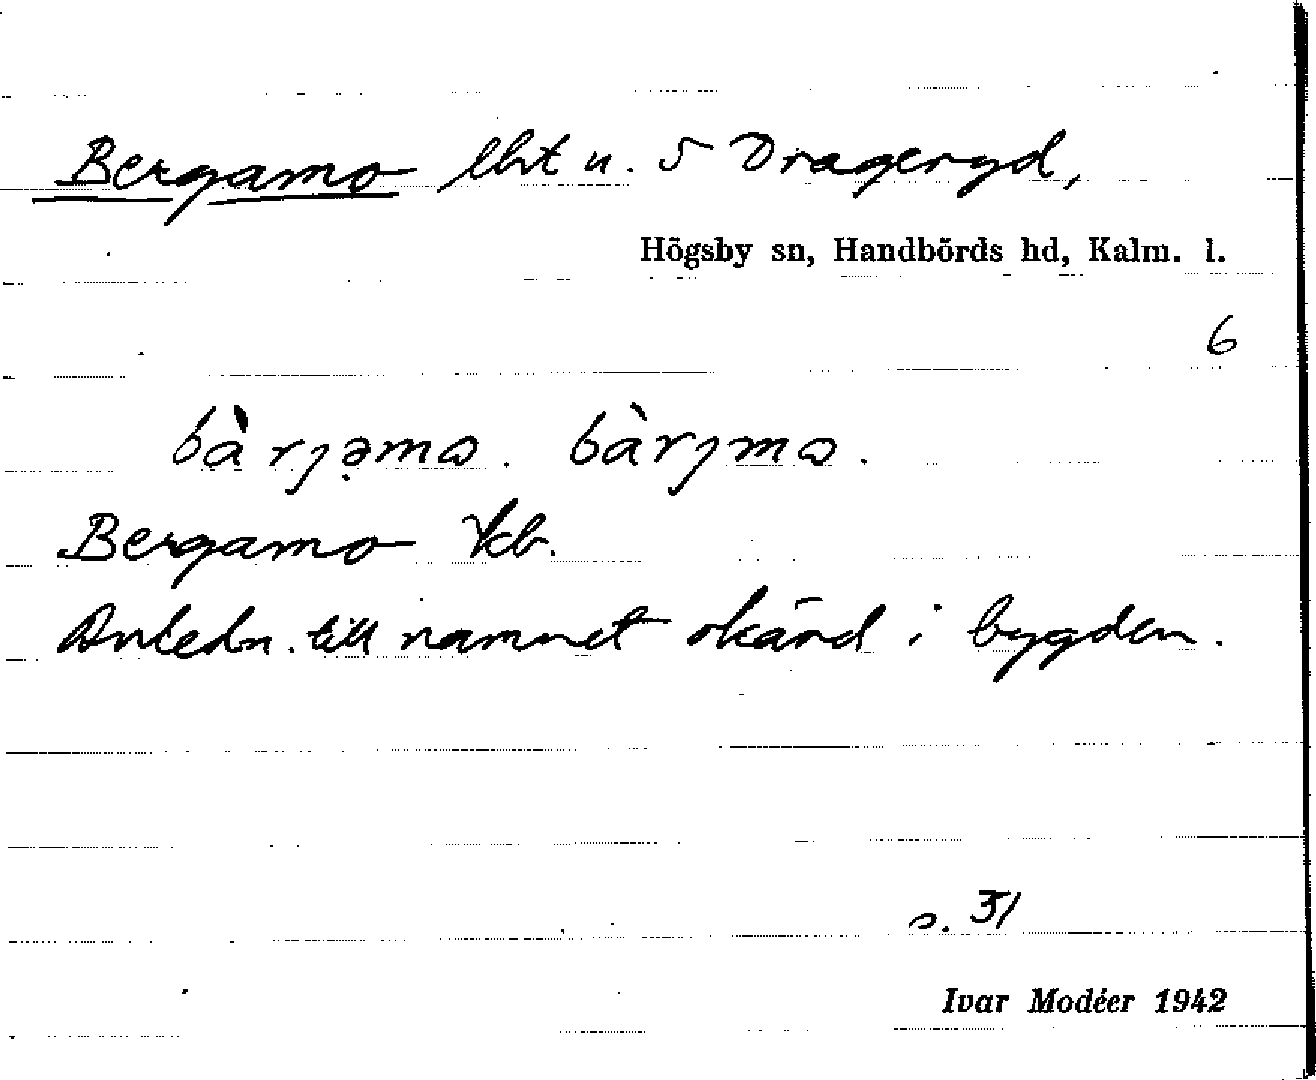 Bergamo lht u. 5 Drageryd,
Högsby sn, Handbörds hd, Kalm. l.
6
bàrjəmω. bàrjmω.
Bergamo kb.
Anledn. till namnet okänd i bygden.
s. 31
Ivar Modéer 1942